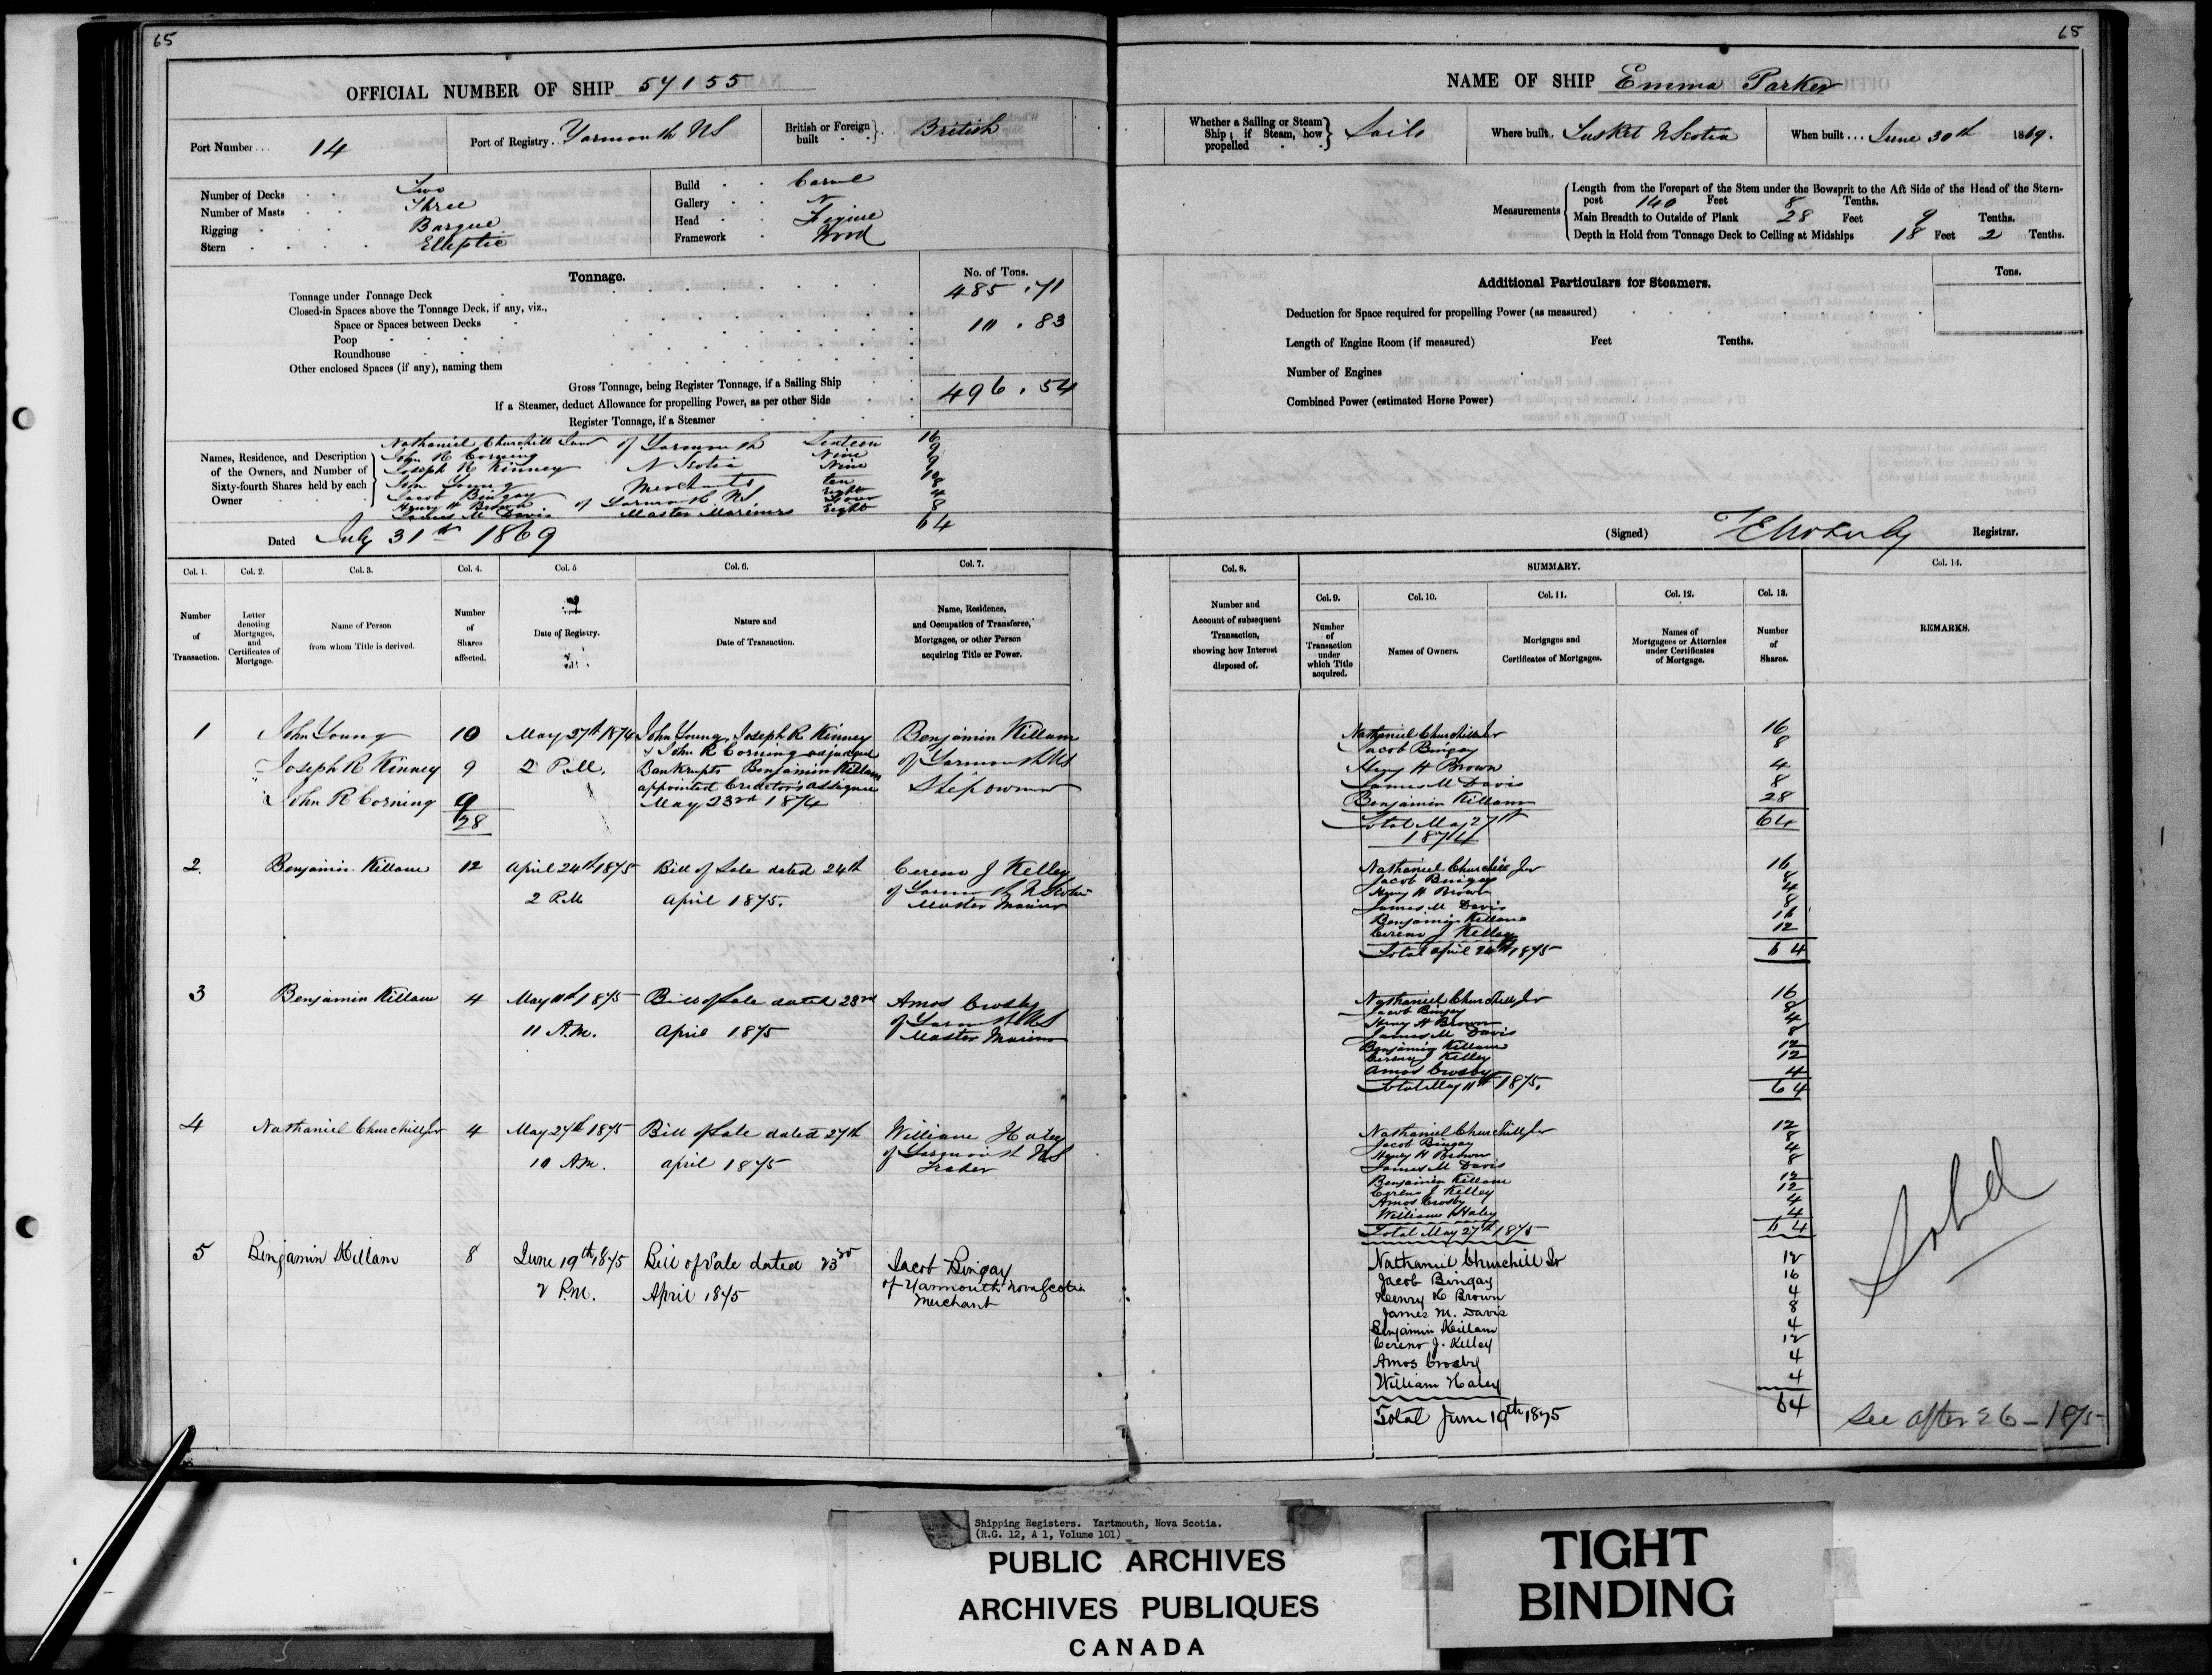 65
OFFICIAL NUMBER OF SHIP 57155
Port Number... 14
Port of Registry. Yarmouth NS
British or Foreign built British
Number of Decks Two
Number of Masts Three
Rigging Barque
Stern Elliptic
Build Carvel
Gallery N
Head Figure
Framework Wood
Tonnage.
No. of Tons.
Tonnage under Tonnage Deck 485.71
Closed-in Spaces above the Tonnage Deck, if any, viz.,
Space or Spaces between Decks 10.83
Poop
Roundhouse
Other enclosed Spaces (if any), naming them
Gross Tonnage, being Register Tonnage, if a Sailing Ship 496.54
If a Steamer, deduct Allowance for propelling Power, as per other Side
Register Tonnage, if a Steamer
Names, Residence, and Description of the Owners, and Number of Sixty-fourth Shares held by each Owner
Nathaniel Churchill Junr of Yarmouth Sixteen 16
John R Corning Nine 9
Joseph R Kinney N Scotia Nine 9
John Young Merchants ten 10
Jacob Bingay Eight 8
Henry H Brown of Yarmouth NS Four 4
James M Davis Master Mariners Eight 8
64
Dated July 31st 1869
Col. 1. Col. 2. Col. 3. Col. 4. Col. 5 Col. 6. Col. 7.
Number of Transaction.
Letter denoting Mortgages, and Certificates of Mortgage.
Name of Person from whom Title is derived.
Number of Shares affected.
Date of Registry.
Nature and Date of Transaction.
Name, Residence, and Occupation of Transferee, Mortgagee, or other Person acquiring Title or Power.
1 John Young 10 May 27th 1874 John Young, Joseph R Kinney Benjamin Killam
& John R Corning adjudged
Joseph R Kinney 9 2 P.M. Bankrupts Benjamin Killam of Yarmouth NS
appointed Creditor's assignee
John R Corning 9 May 23rd 1874 Shipowner
28
2 Benjamin Killam 12 April 24th 1875 Bill of Sale dated 24th Cereno J Kelley
2 P.M April 1875. of Yarmouth N Scotia
Master Mariner
3 Benjamin Killam 4 May 11th 1875 Bill of Sale dated 23rd Amos Crosby
11 A.M. April 1875 of Yarmouth NS
Master Mariner
4 Nathaniel Churchill Jr 4 May 27th 1875 Bill of Sale dated 27th William Haley
10 A.M. April 1875 of Yarmouth NS
Trader
5 Benjamin Killam 8 June 19th 1875 Bill of Sale dated 23rd Jacob Bingay
2 P.M. April 1875 of Yarmouth Nova Scotia
Merchant
65
NAME OF SHIP Emma Parker
Whether a Sailing or Steam Ship; if Steam, how propelled Sails
Where built. Tusket N Scotia
When built... June 30th 1869.
Measurements
Length from the Forepart of the Stem under the Bowsprit to the Aft Side of the Head of the Stern-
post 140 Feet 8 Tenths.
Main Breadth to Outside of Plank 28 Feet 9 Tenths.
Depth in Hold from Tonnage Deck to Ceiling at Midships 18 Feet 2 Tenths.
Additional Particulars for Steamers.
Tons.
Deduction for Space required for propelling Power (as measured)
Length of Engine Room (if measured) Feet Tenths.
Number of Engines
Combined Power (estimated Horse Power)
(Signed) Registrar.
Col. 8. SUMMARY. Col. 14.
Col. 9. Col. 10. Col. 11. Col. 12. Col. 13.
Number and Account of subsequent Transaction, showing how Interest disposed of.
Number of Transaction under which Title acquired.
Names of Owners.
Mortgages and Certificates of Mortgages.
Names of Mortgagees or Attornies under Certificates of Mortgage.
Number of Shares.
REMARKS.
Nathaniel Churchill Jr 16
Jacob Bingay 8
Henry H Brown 4
James M Davis 8
Benjamin Killam 28
Total May 27th 64
1874
Nathaniel Churchill Jr 16
Jacob Bingay 8
Henry H Brown 4
James M Davis 8
Benjamin Killam 16
Cereno J Kelley 12
Total April 24th 1875 64
Nathaniel Churchill Jr 16
Jacob Bingay 8
Henry H Brown 4
James M Davis 8
Benjamin Killam 12
Cereno J Kelley 12
Amos Crosby 4
Total May 11th 1875. 64
Nathaniel Churchill Jr 12
Jacob Bingay 8
Henry H Brown 4
James M Davis 8
Benjamin Killam 12
Cereno J Kelley 12
Amos Crosby 4
William Haley 4
Total May 27th 1875 64
Nathaniel Churchill Jr 12
Jacob Bingay 16
Henry H Brown 4
James M. Davis 8
Benjamin Killam 4
Cereno J. Kelley 12
Amos Crosby 4
William Haley 4
64
Total June 19th 1875
Sold
See after 26-1875
Shipping Registers. Yartmouth, Nova Scotia.
(R.G. 12, A 1, Volume 101)
PUBLIC ARCHIVES
ARCHIVES PUBLIQUES
CANADA
TIGHT
BINDING